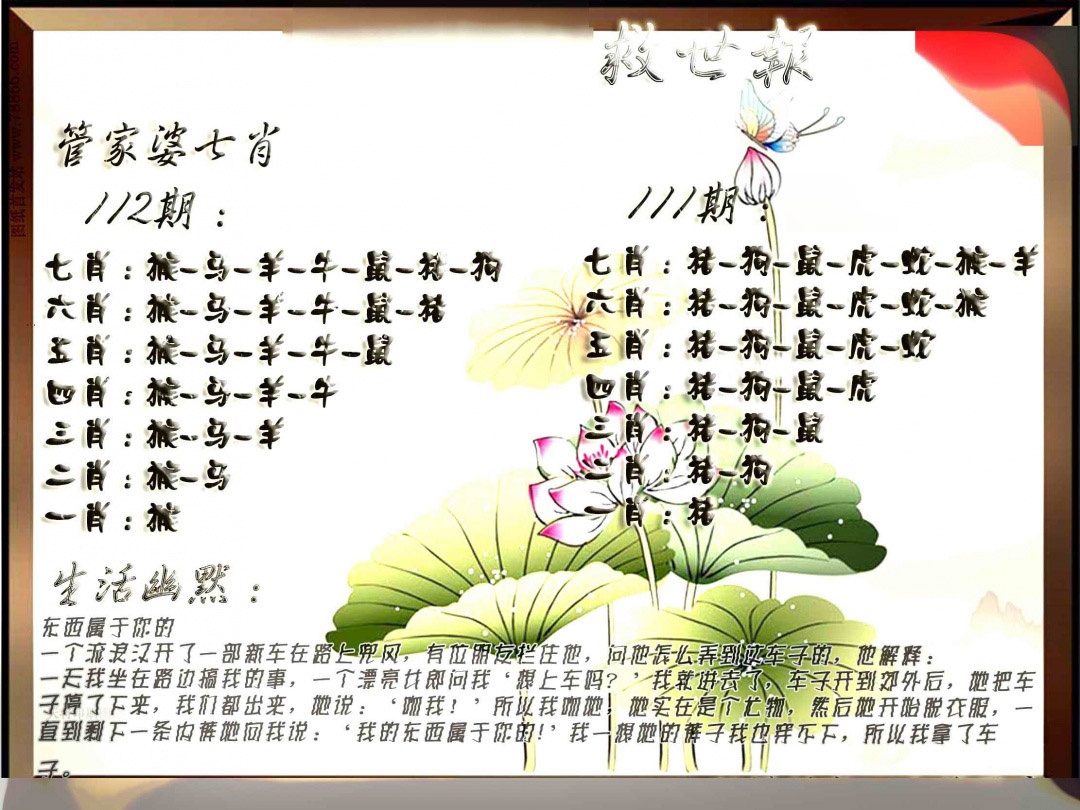 救世報
管家婆七肖
112期：
七肖：猴-马-羊-牛-鼠-猪-狗
六肖：猴-马-羊-牛-鼠-猪
五肖：猴-马-羊-牛-鼠
四肖：猴-马-羊-牛
三肖：猴-马-羊
二肖：猴-马
一肖：猴
111期：
七肖：猪-狗-鼠-虎-蛇-猴-羊
六肖：猪-狗-鼠-虎-蛇-猴
五肖：猪-狗-鼠-虎-蛇
四肖：猪-狗-鼠-虎
三肖：猪-狗-鼠
二肖：猪-狗
一肖：猪
生活幽默：
东西属于你的
一个流浪汉开了一部新车在路上兜风，有位朋友栏住他，问他怎么弄到这车子的，他解释：
一天我坐在路边搞我的事，一个漂亮女郎问我‘想上车吗？’我就进去了，车子开到郊外后，她把车
子停了下来，我们都出来，她说：‘吻我！’所以我吻她，她实在是个尤物，然后她开始脱衣服，一
直到剩下一条内裤她向我说：‘我的东西属于你的！’我一想她的裤子我也穿不下，所以我拿了车
子。